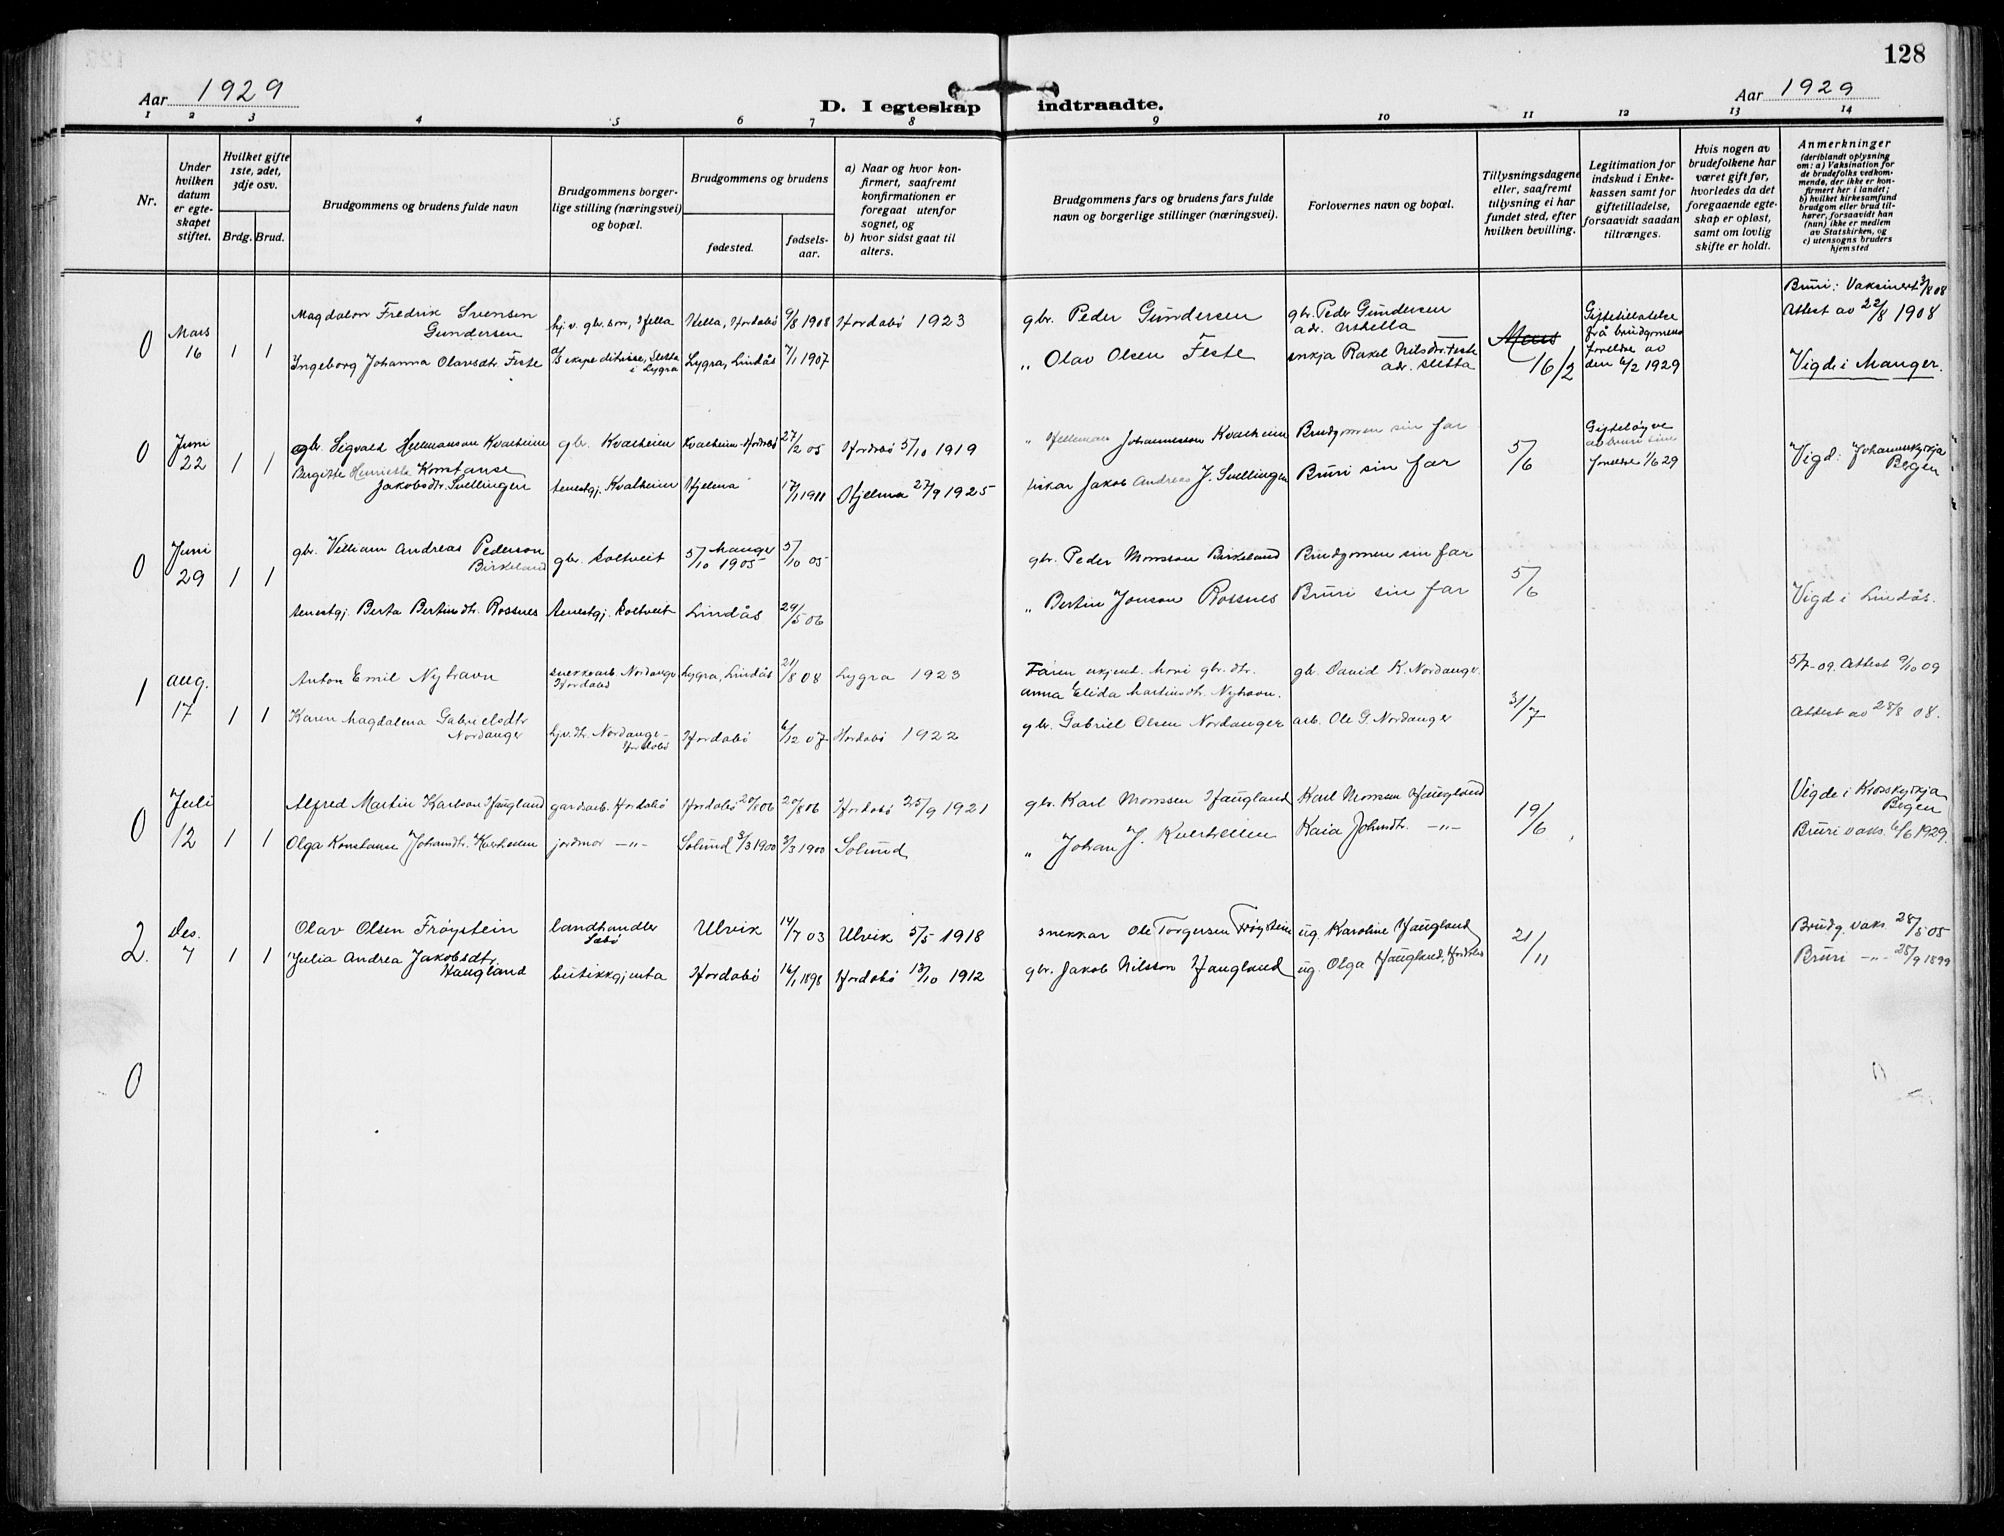 128
Aar 1929
D. I egteskap indtraadte.
Aar 1929
1 2 3 4 5 6 7 8 9 10 11 12 13 14
Nr.
Under hvilken datum er egteskapet stiftet.
Hvilket gifte 1ste, 2det, 3dje osv.
Brdg. Brud.
Brudgommens og brudens fulde navn
Brudgommens borgerlige stilling (næringsvei) og bopæl.
Brudgommens og brudens
fødested.
fødselsaar.
a) Naar og hvor konfirmert, saafremt konfirmationen er foregaat utenfor sognet, og
b) hvor sidst gaat til alters.
Brudgommens fars og brudens fars fulde navn og borgerlige stillinger (næringsvei).
Forlovernes navn og bopæl.
Tillysningsdagene eller, saafremt tillysning ei har fundet sted, efter hvilken bevilling.
Legitimation for indskud i Enkekassen samt for giftetilladelse, forsaavidt saadan tiltrænges.
Hvis nogen av brudefolkene har været gift før, hvorledes da det foregaaende egteskap er opløst, samt om lovlig skifte er holdt.
Anmerkninger
(deriblandt oplysning om: a) Vaksination for de brudefolks vedkommende, der ikke er konfirmert her i landet; b) hvilket kirkesamfund brudgom eller brud tilhører, forsaavidt han (hun) ikke er medlem av Statskirken, og c) utensogns bruders hjemsted
0 Mars 16 1 1
Magdalon Fredrik Svensen Gundersen
hj.v. gbr. son, Hella
Hella, Hordabø 9/8 1908
Hordabø 1923
gbr. Peder Gundersen
gbr. Peder Gundersen adr. Uthella
Mars 16/2
Giftetilatelse frå brudgomens foreldre av den 6/2 1929
Bruri: Vaksinert 3/8 08
Attest av 22/8 1908
Ingeborg Johanna Olavsdtr Feste
Lygra, Lindås 7/1 1907
" Olav Olsen Feste
enkja Rakel Nilsdtr. Feste adr. Sletta
Vigde i Manger.
0 Juni 22 1 1
gbr. Sigvald Hellmanson Kvalheim
gbr. Kvalheim
Kvalheim-Hordabø 27/2 05
Hordabø 5/10 1919
" Hellman Johannesson Kvalheim
Brudgomen sin far
5/6
Gifteløyve av bruri sine foreldre 1/6 29
Vigd: Johanneskyrkja Bergen
Bergitte Henriette Konstanse Jakobsdtr. Svellingen
tenestgj. Kvalheim
Hjelma 17/1 1911
Hjelma 27/9 1925
fiskar Jakob Andreas J. Svellingen
Bruri sin far
0 Juni 29 1 1
gbr. Villiam Andreas Pederson Birkeland
gbr. Soltveit
5/10 Manger 1905 5/10 05
gbr. Peder Monsson Birkeland
Brudgomen sin far
5/6
tenestgj. Berta Bertinsdtr. Rossnes
tenestgj. Soltveit
Lindås 29/5 06
" Bertin Jonson Rossnes
Bruri sin far
Vigde i Lindås.
1 aug. 17 1 1
Anton Emil Nyhavn
snekkararb. Nordanger Hordabø
Lygra, Lindås 21/8 08
Lygra 1923
Faren ukjent. Mori gbr. dtr. Anna Elida Martinsdtr. Nyhavn.
gb. David K. Nordanger.
31/7
5/7-09. Attest 9/10 09
Karen Magdalena Gabrielsdtr Nordanger
hjv. dtr. Nordanger - Hordabø
Hordabø 6/12 07
Hordabø 1922
gbr. Gabriel Olsen Nordanger
arb. Ole G. Nordanger
Attest av 28/8 08.
0 Juli 12 1 1
Alfred Martin Karlson Haugland
gardsarb. Hordabø
Hordabø 20/8 06 20/8 06
Hordabø 25/9 1921
gbr. Karl Monssen Haugland
Karl Monssen Haugland
19/6
Vigde i Krosskyrkja Bergen
Olga Konstanse Johansdtr. Kverheden
jordmor -"-
Solund 3/3 1900 3/3 1900
Solund
" Johan J. Kverhellen
Kaia Johnsdtr. -"-
Bruri vaks. 6/6 1929.
2. Des. 7 1 1
Olav Olsen Frøystein
landhandler Sæbø
Ulvik 14/7 03
Ulvik 5/5 1918
snekkar Ole Torgersen Frøystein
ug. Karoline Haugland
21/11
Brudg. vaks. 28/5 05
Julia Andrea Jakobsdtr. Haugland
butikkgjenta
Hordabø 16/1 1898
Hordabø 13/10 1912
gbr. Jakob Nilsson Haugland
ug. Olga Haugland, Hordabø
Bruri -"- 25/9 1899
0